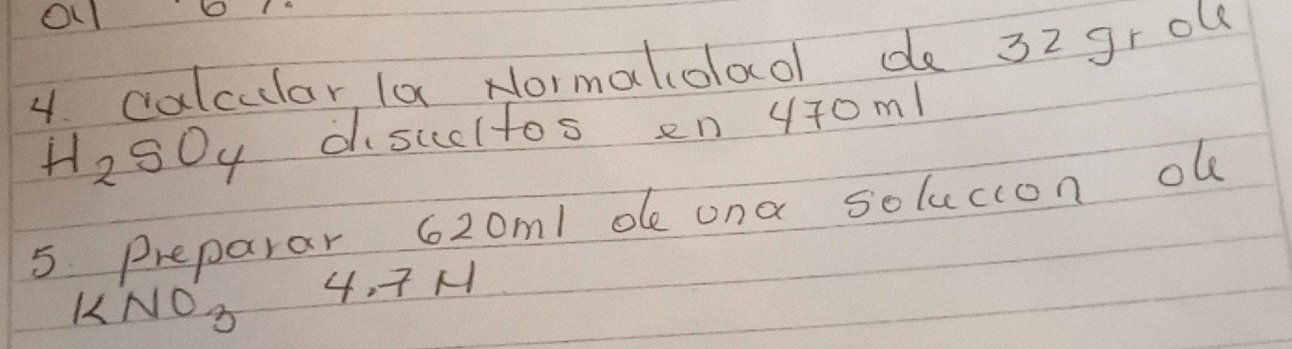 al 6%
4. Calcular la Normalidad de 32 gr de
H2SO4 disueltos en 470ml
5. Preparar 620ml de una solucion de
KNO3 4,7 N